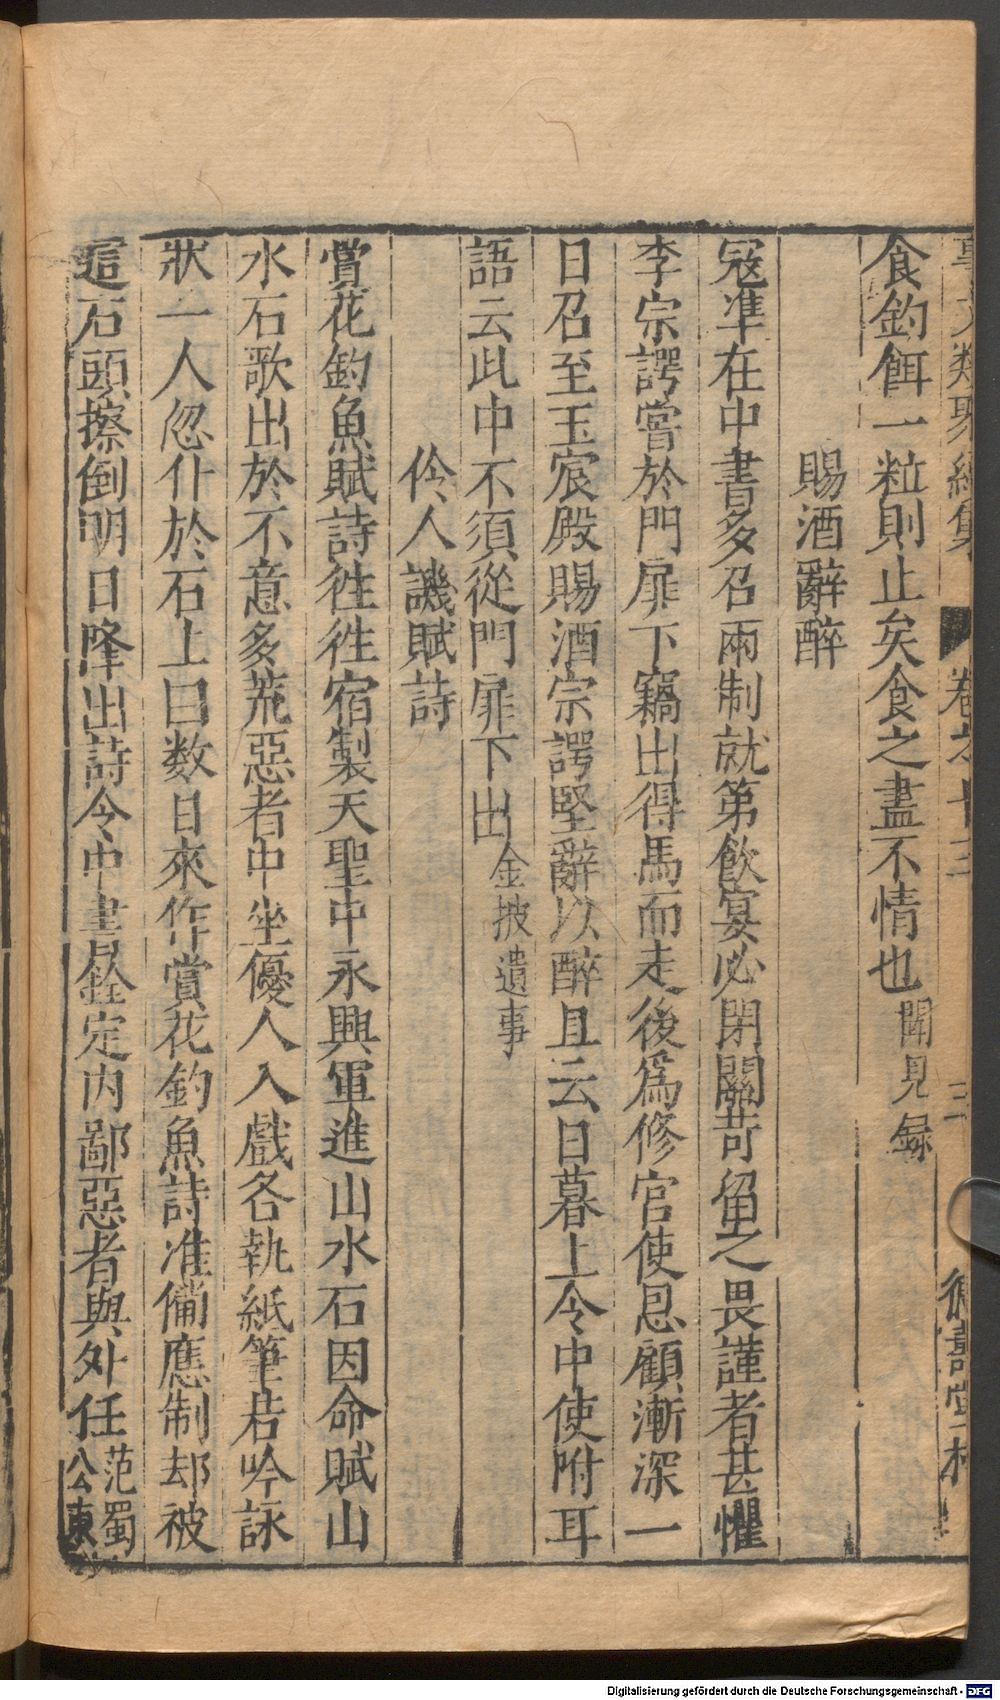 事文類聚續集 卷之十三 三
食釣餌一粒則止矣食之盡不情也聞見録
賜酒辭醉
冦凖在中書多召兩制就第飲宴必閉關苛留之畏謹者甚懼
李宗諤嘗於門扉下竊出得馬而走後爲修宫使恩顧漸深一
日召至玉宸殿賜酒宗諤堅辭以醉且云日暮上令中使附耳
語云此中不須從門扉下出金坡遺事
伶人譏賦詩
賞花釣魚賦詩徃徃宿製天聖中永興軍進山水石因命賦山
水石歌出於不意多荒惡者中坐優人入戲各執紙筆若吟詠
狀一人忽仆於石上曰数日來作賞花釣魚詩准備應制却被
這石頭擦倒明日降出詩令中書銓定内鄙惡者與外任范蜀公東
Digitalisierung gefördert durch die Deutsche Forschungsgemeinschaft - DFG